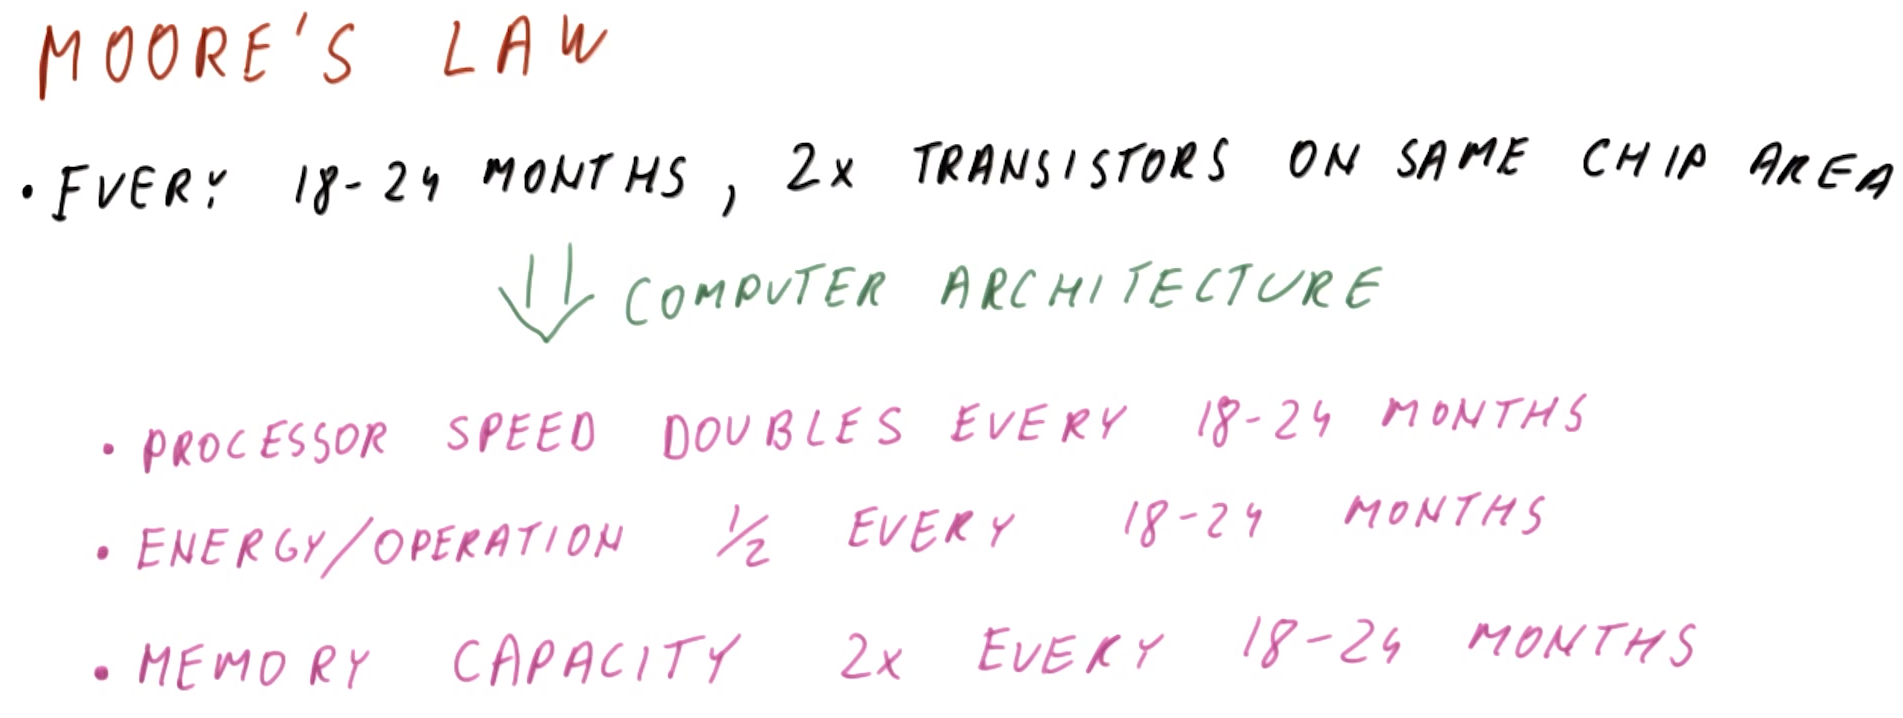 MOORE'S LAW
• EVERY 18-24 MONTHS, 2x TRANSISTORS ON SAME CHIP AREA
⇓ COMPUTER ARCHITECTURE
• PROCESSOR SPEED DOUBLES EVERY 18-24 MONTHS
• ENERGY/OPERATION 1/2 EVERY 18-24 MONTHS
• MEMORY CAPACITY 2x EVERY 18-24 MONTHS